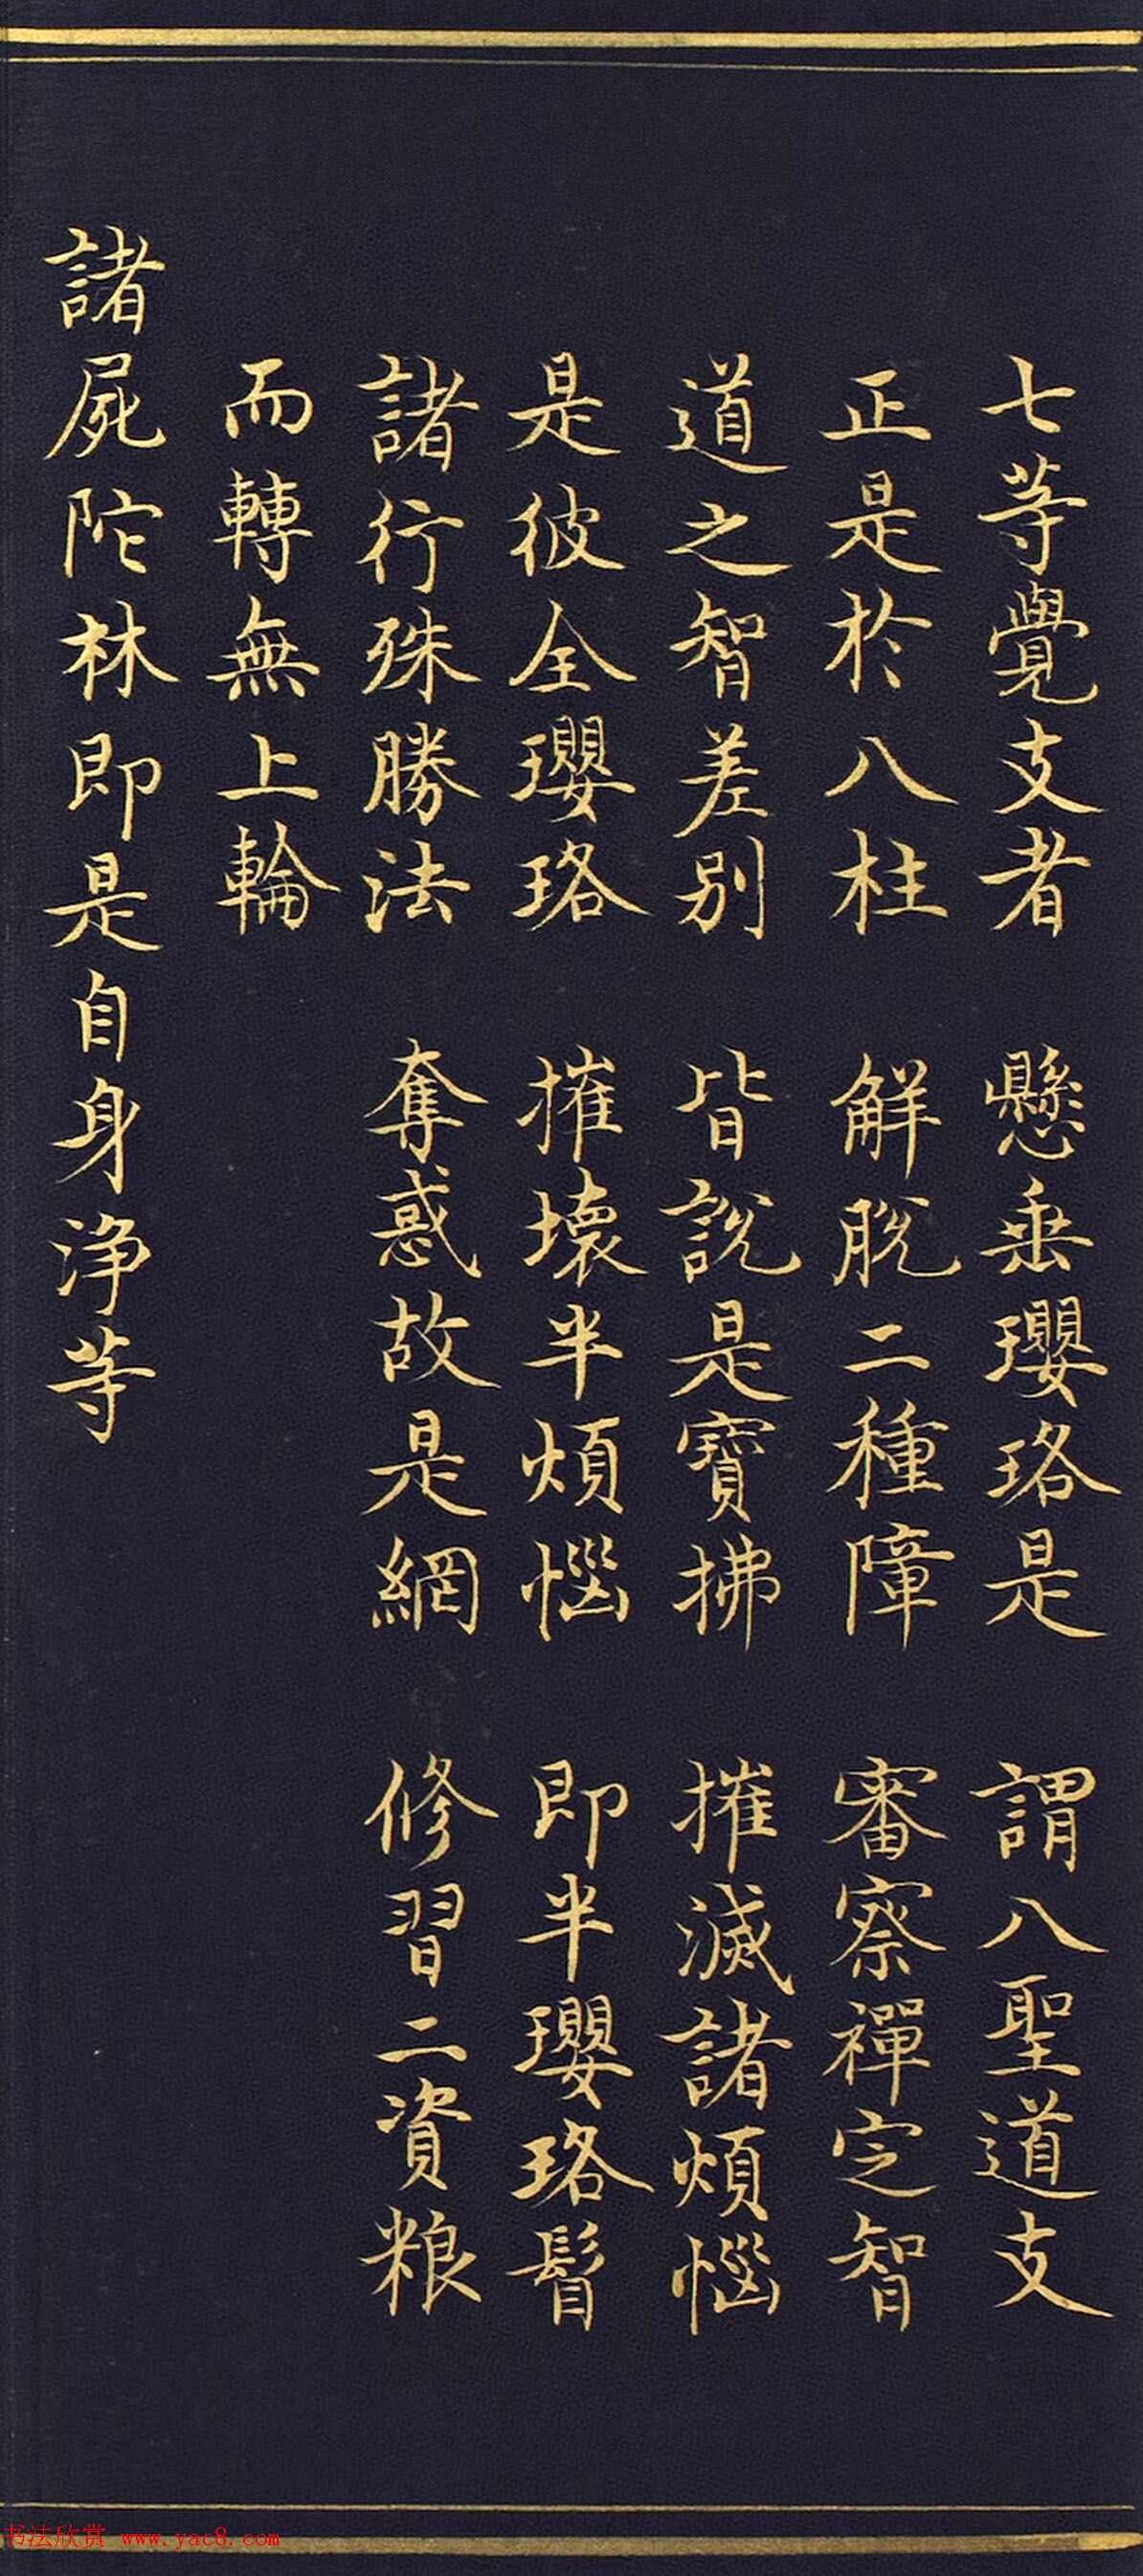 七等覺支者 懸垂瓔珞是 謂八聖道支
正是於八柱 解脫二種障 審察禪定智
道之智差別 皆說是寶拂 摧滅諸煩惱
是彼全瓔珞 摧壞半煩惱 即半瓔珞髾
諸行殊勝法 奪惑故是網 修習二資粮
而轉無上輪
諸屍陀林即是自身淨等
书法欣赏 www.yac8.com